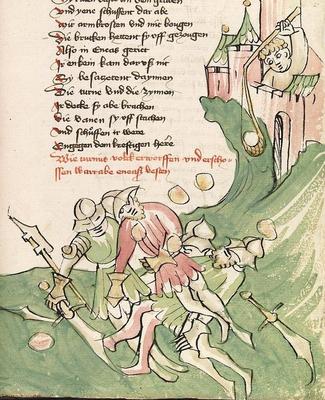 Und yene schussen dar abe
Mit armbrosten und mit bougen
Die brucken hettent sy off gezougen
Also in Eneas geriet
Ir enkein kam daroß nit
Sy besatztent
Die turne und die zynnen
Ir decke sy abe brachen
die vanen sy uff stachen
Und schussen ir were
Engegen dem krefftigen here
Wie turnus volck erworffen und erscho-
ssen wart abe eneaß vesten